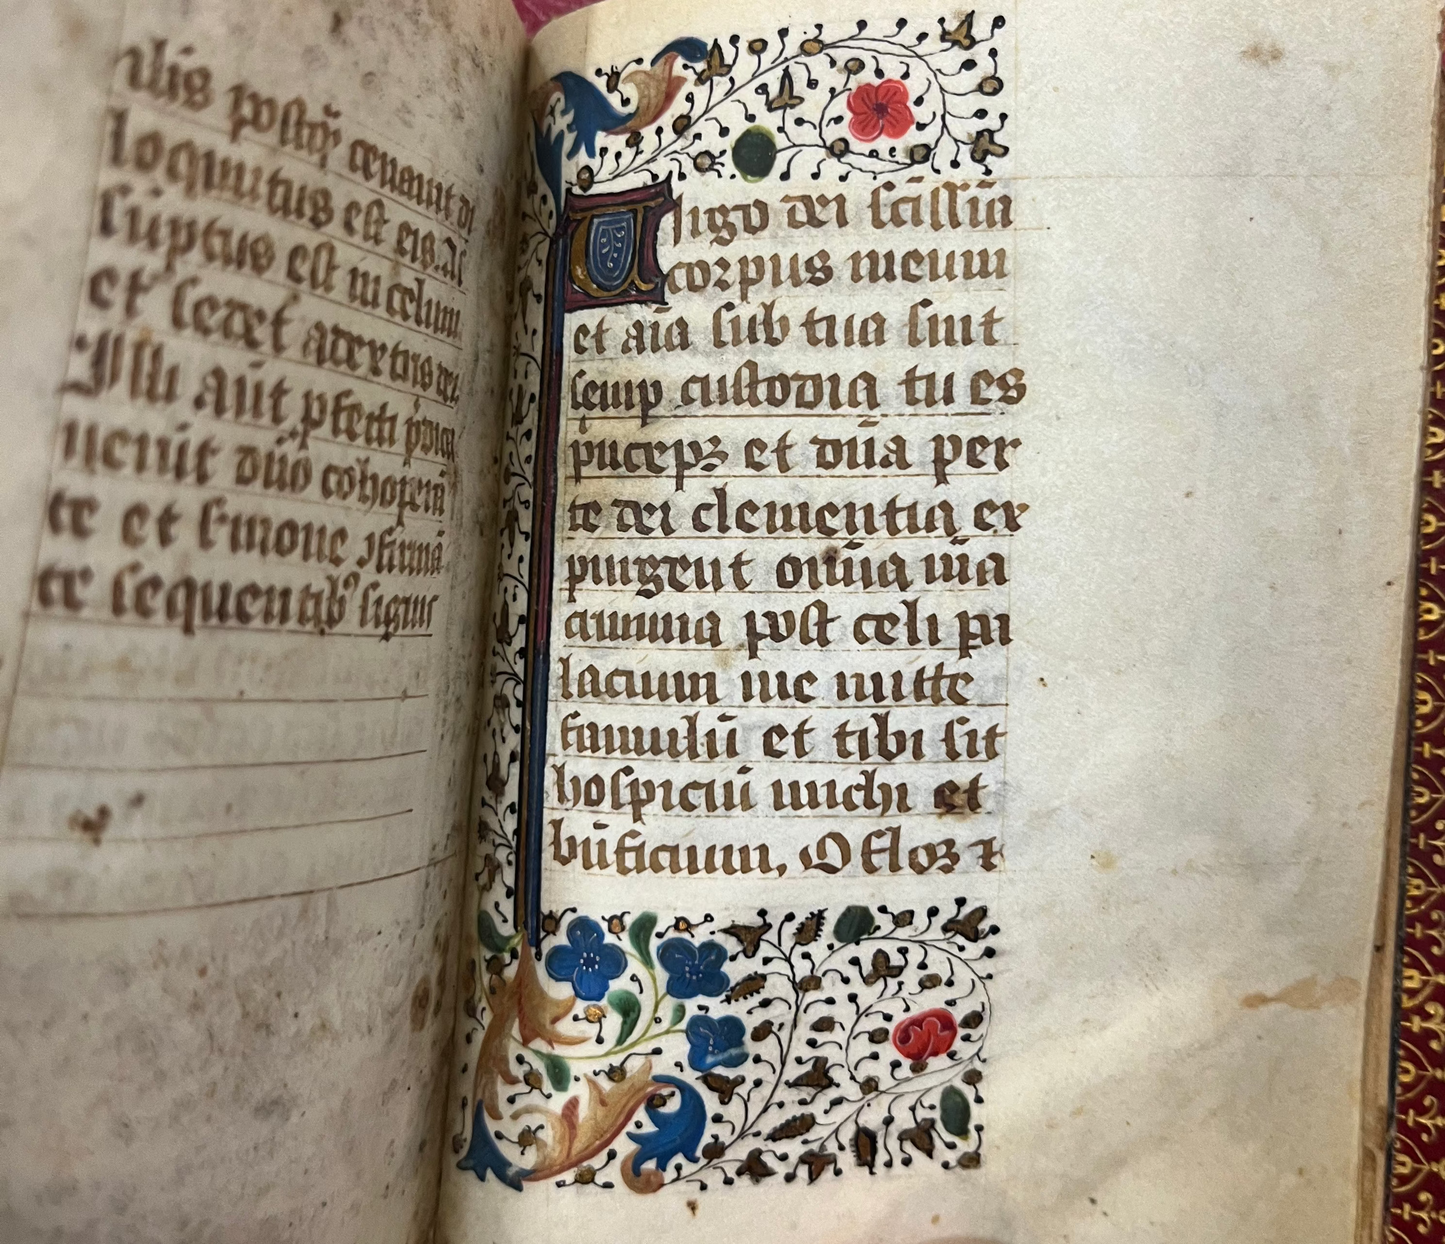 illis postq̄ cenauit di
loquutus est eis. As
sūptus est in celum
et sedet a dextris dei
Illi aūt pfecti p̄dica
uerūt dūo cohoperā
te et s̄mone ɔfirmā
te sequentibꝰ signis
Uirgo dei scīssīa
corpus meum
et aīa sub tua sint
semp custodia tu es
pnceps et dn̄a per
te dei clementia ex
purgent om̄ia m̄a
crimina post celi pa
lacium me mitte
famulū et tibi sit
hospiciū michi et
bn̄ficium, O flos ꝛ